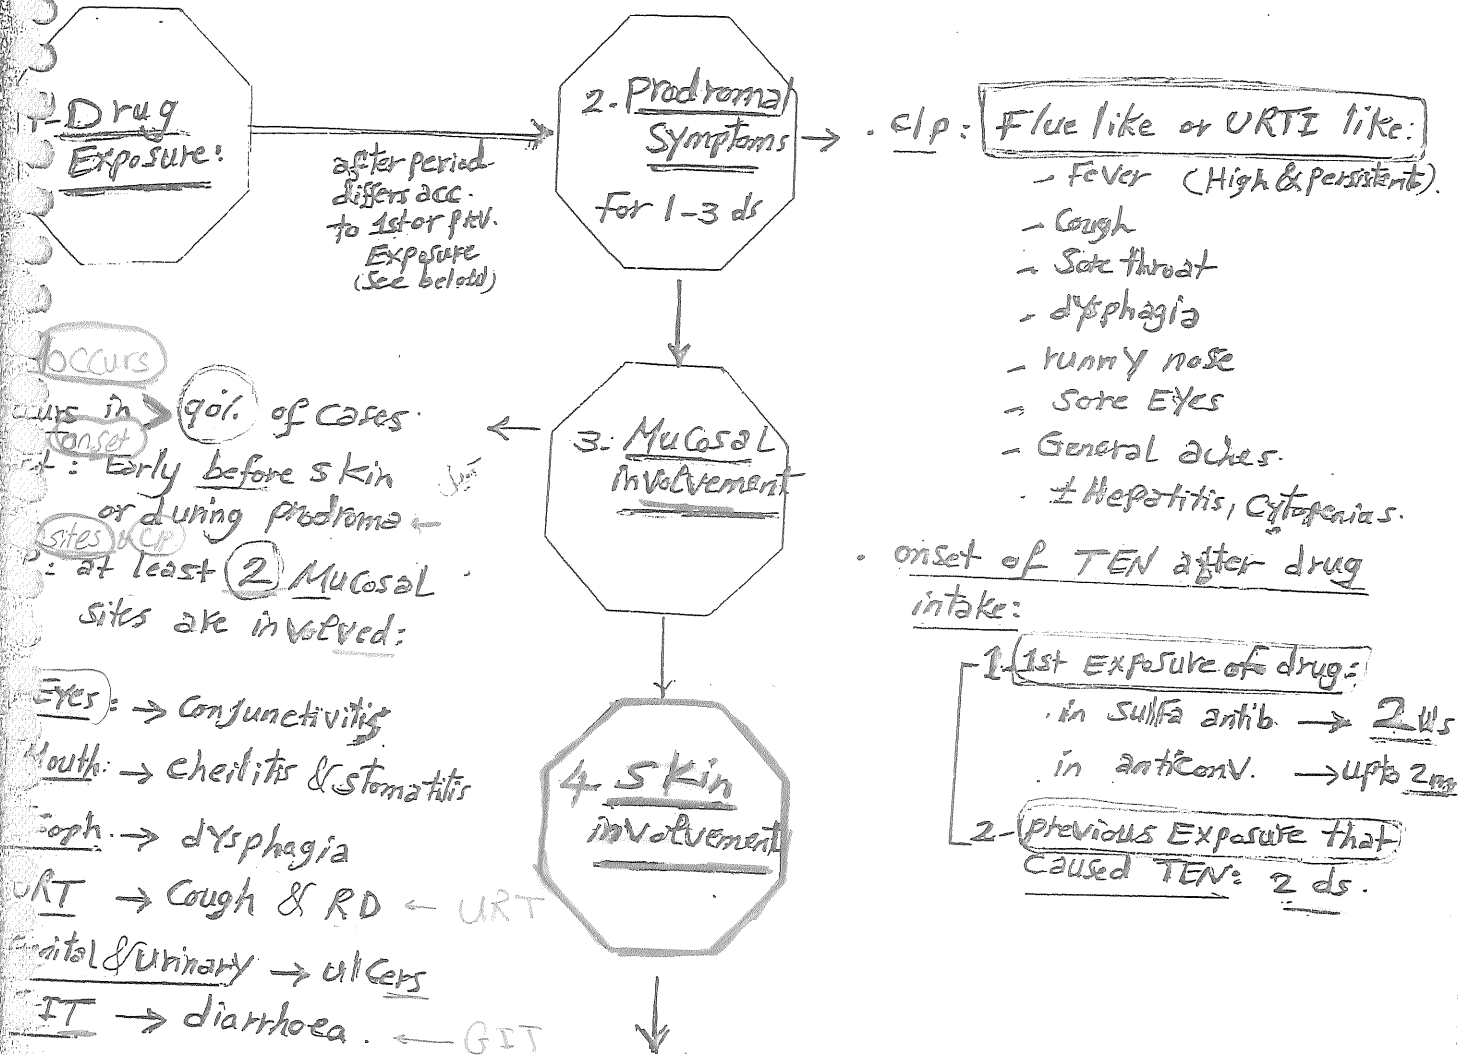 1- Drug
Exposure:
after period
differs acc.
to 1st or prev.
Exposure
(see below)
2. Prodromal
Symptoms
For 1-3 ds
. c/p: Flue like or URTI like:
- Fever (High & persistent).
- Cough
- Sore throat
- dysphagia
- runny nose
- Sore Eyes
- General aches.
. ± Hepatitis, Cytopenias.
. onset of TEN after drug
intake:
1. 1st Exposure of drug:
. in sulfa antib. → 2 ws
. in anticonv. → up to 2
2- previous Exposure that
Caused TEN: 2 ds.
3. Mucosal
involvement
occurs
in > 90% of cases.
onset
: Early before skin
or during prodroma ←
sites & C/P
: at least 2 Mucosal
sites are involved:
Eyes: → conjunctivitis
Mouth: → cheilitis & stomatitis
→ dysphagia
URT → Cough & RD ← URT
& urinary → ulcers
GIT → diarrhoea. ← GIT
4- Skin
involvement